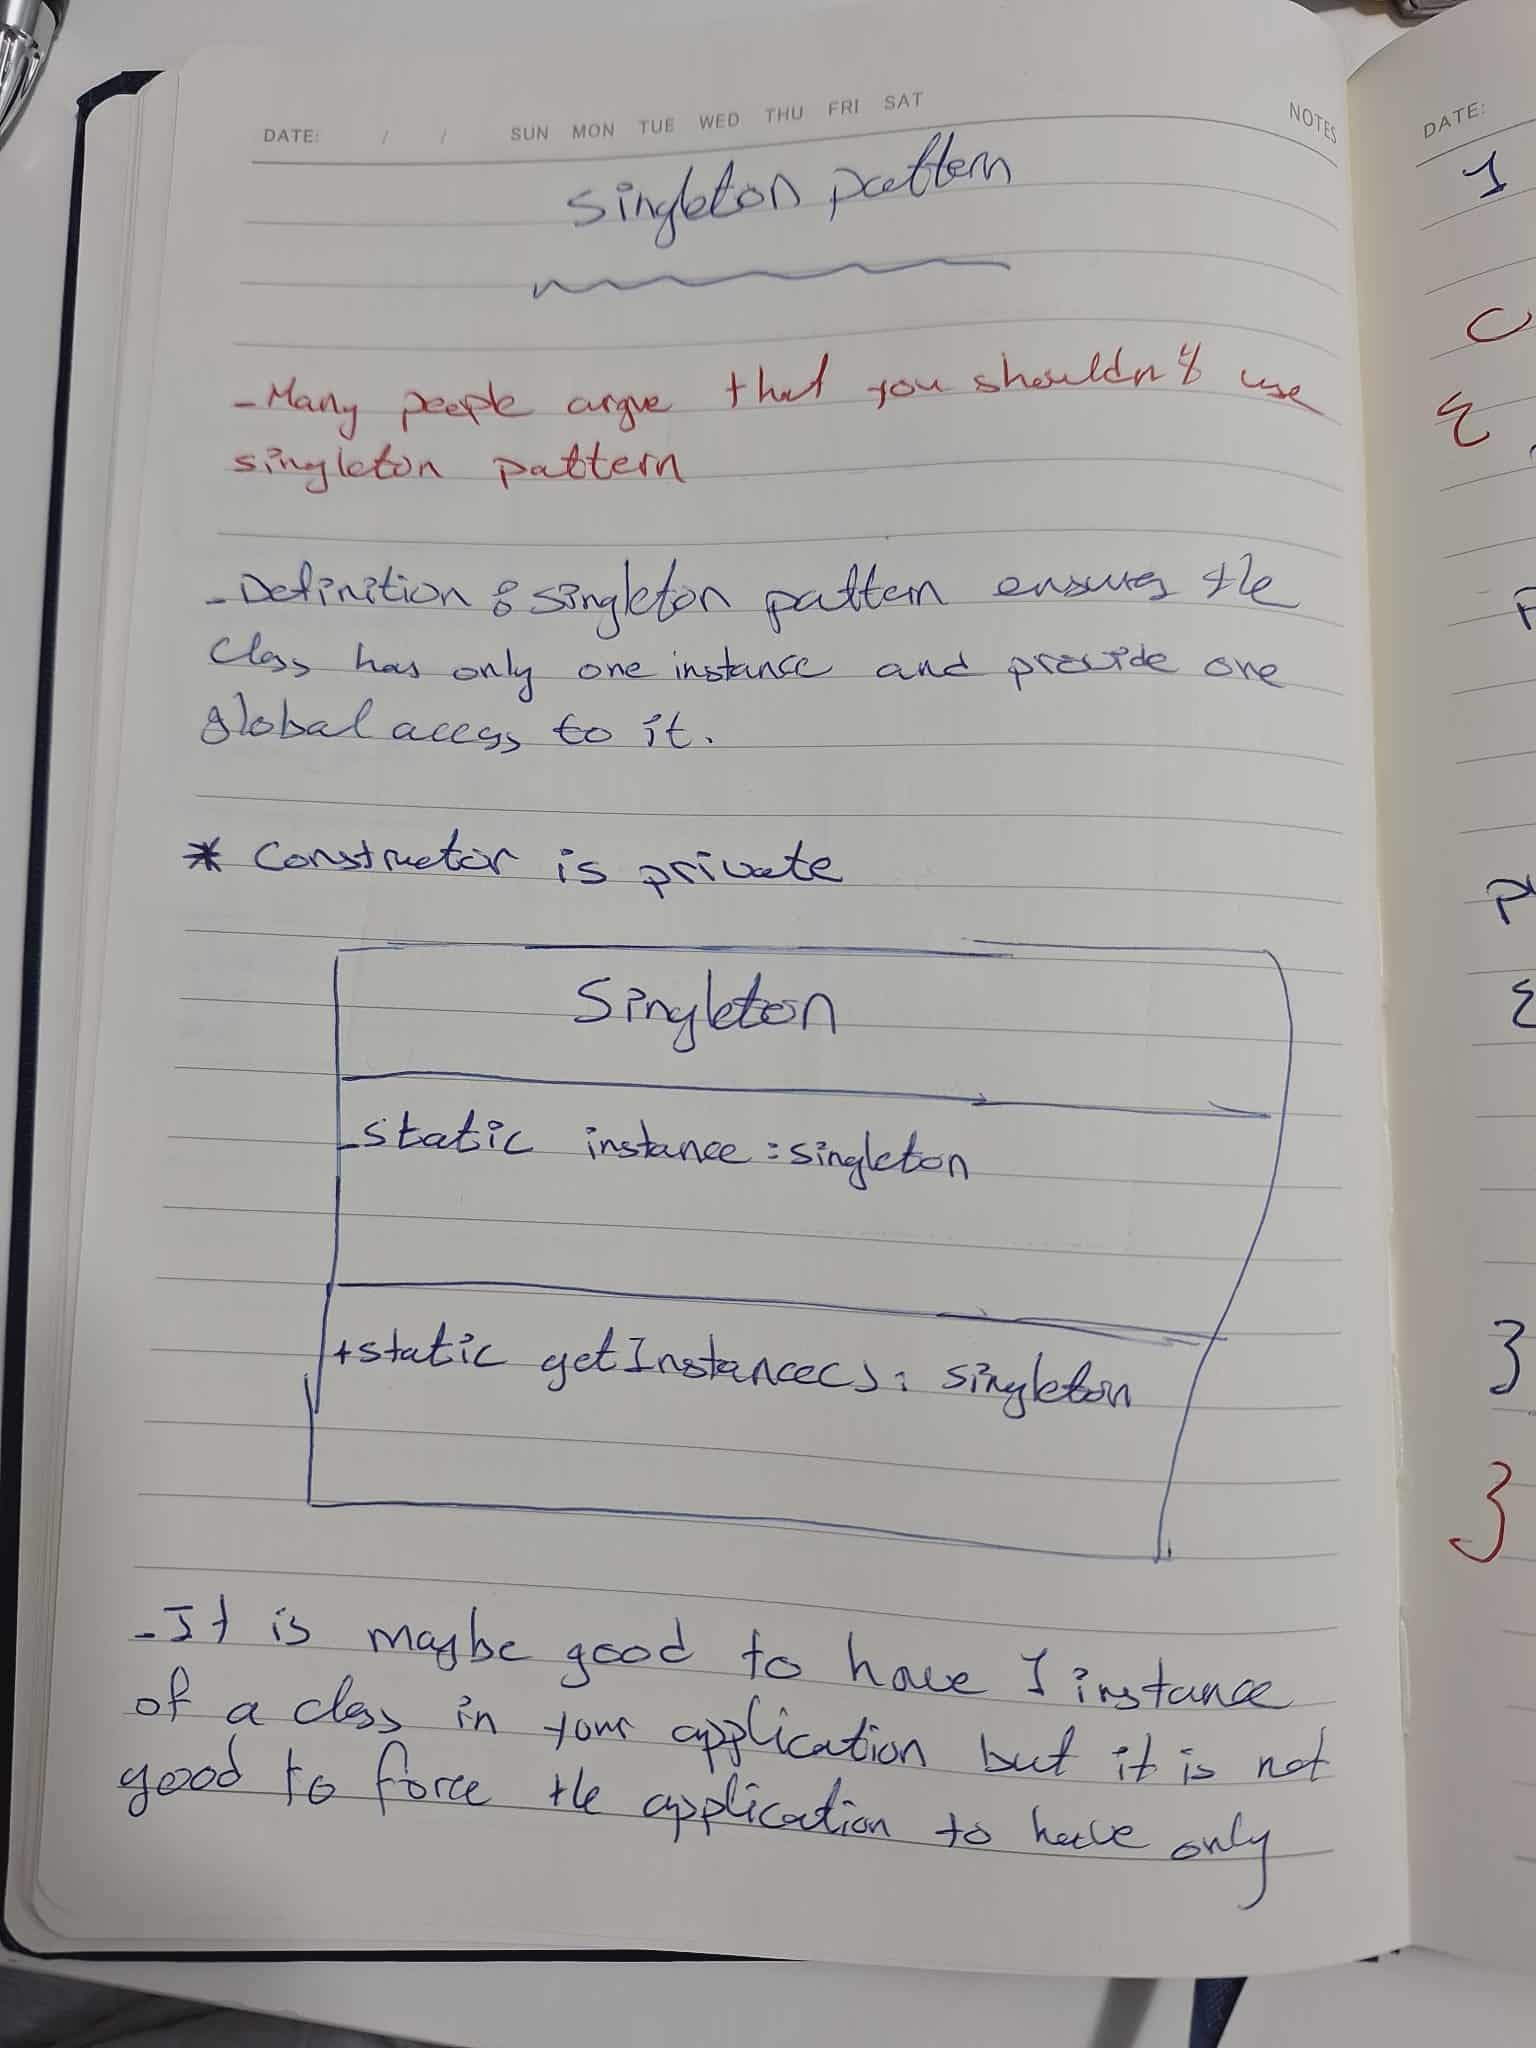 DATE: / / SUN MON TUE WED THU FRI SAT
NOTES
singleton pattern
- Many people argue that you shouldn't use
singleton pattern
- Definition: singleton pattern ensures the
class has only one instance and provide one
global access to it.
* Constructor is private
Singleton
- static instance : singleton
+ static getInstance() : singleton
- It is maybe good to have 1 instance
of a class in your application but it is not
good to force the application to have only
DATE:
1